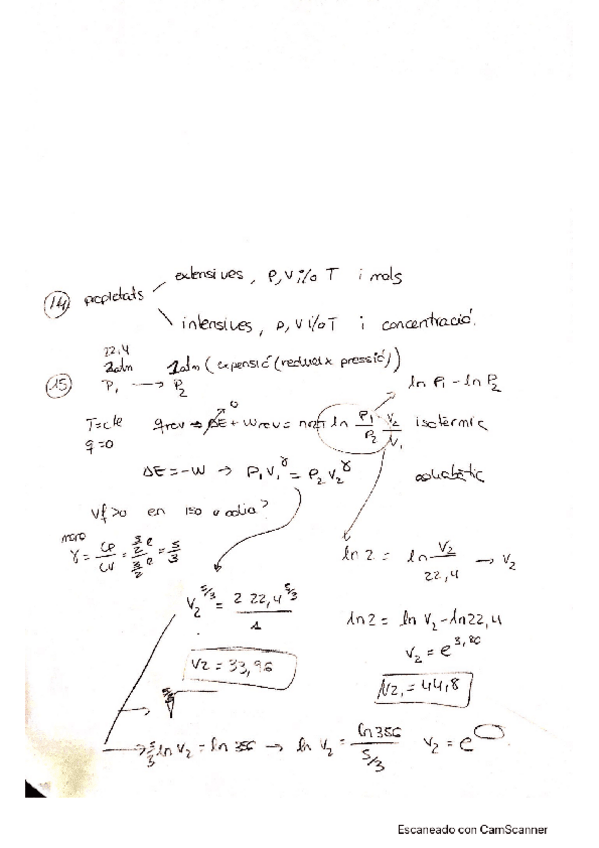 extensives, P, V i/o T i mols
14 propietats
intensives, P, V i/o T i concentració.
22,4
2atm 1atm (expansió (redueix pressió))
15 P₁ → P₂
ln P₁ - ln P₂
T=cte qrev → ΔE + Wrev = nRT ln P₁/P₂ V₂/V₁ isotèrmic
0
q=0
ΔE = -W → P₁V₁^γ = P₂V₂^γ adiabàtic
Vf>0 en iso o adia?
mono
γ = CP/CV = 5/2 R / 3/2 R = 5/3
ln 2 = ln V₂/22,4 → V₂
V₂^5/3 = 2 22,4^5/3 / 1
ln 2 = ln V₂ - ln 22,4
V₂ = e^3,80
V2 = 33,96
V2, = 44,8
5/3 ln V₂ = ln 356 → ln V₂ = ln 356 / 5/3 V₂ = e
Escaneado con CamScanner